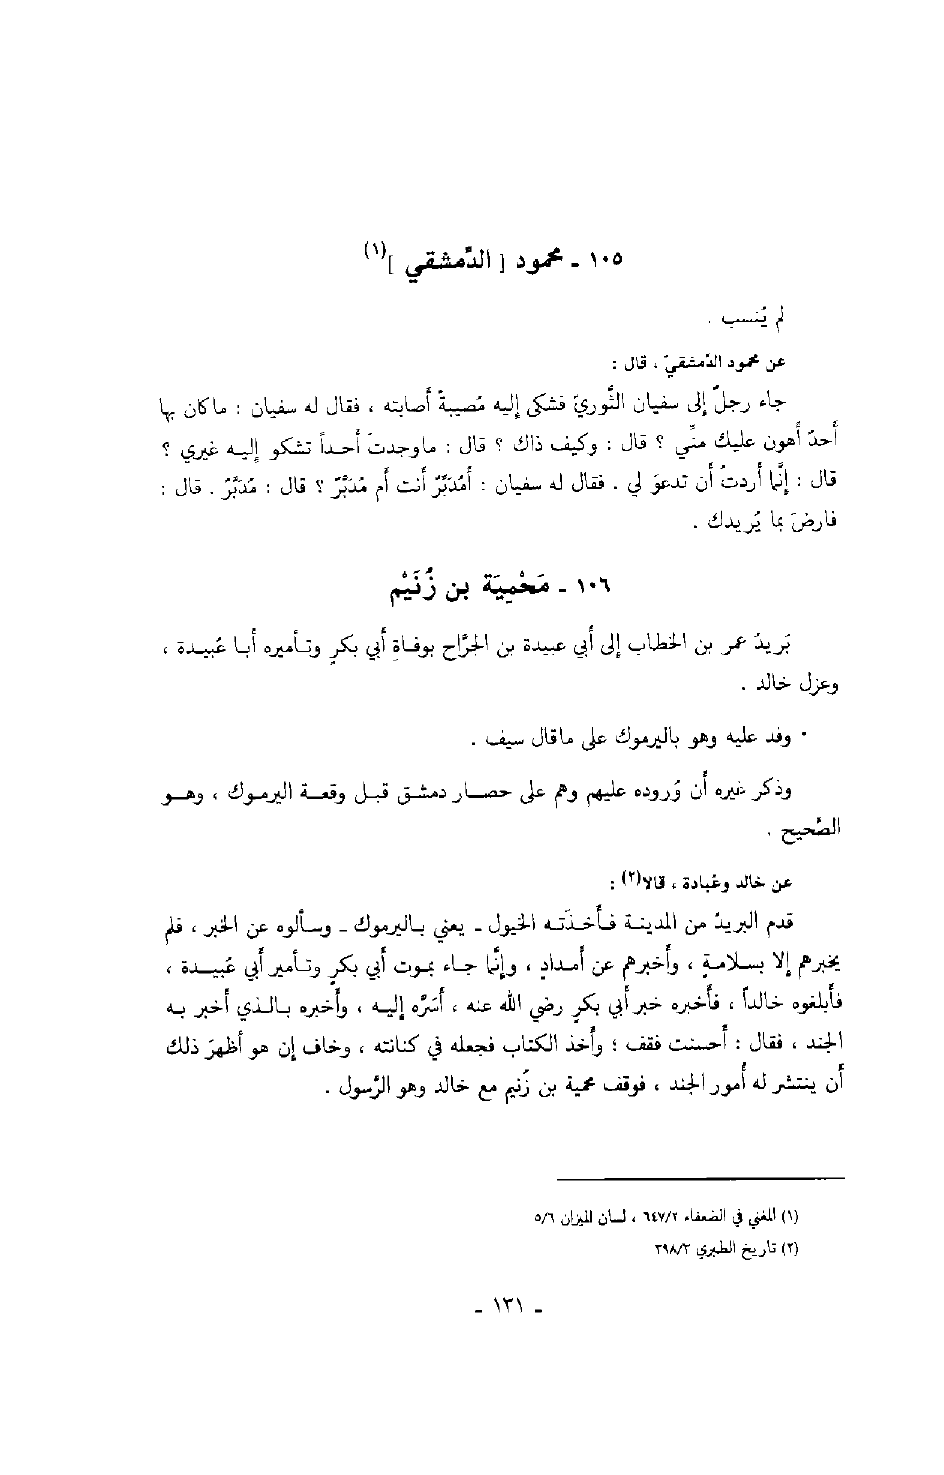 ١٠٥ - محمود [ الدّمشقي ](١)
لم يُنسب .
عن محمود الدّمشقيّ ، قال :
جاء رجلٌ إلى سفيان الثَّوريّ فشكى إليه مُصيبةً أصابته ، فقال له سفيان : ماكان بها
أحدٌ أهون عليك منّي ؟ قال : وكيف ذاك ؟ قال : ماوجدتَ أحداً تشكو إليه غيري ؟
قال : إنَّما أردتُ أن تدعوَ لي . فقال له سفيان : أَمُدَبِّرٌ أنت أم مُدَبَّرٌ ؟ قال : مُدَبَّرٌ . قال :
فارضَ بما يُريدك .
١٠٦ - مَحْمِيَة بن زُنَيْم
بَريدُ عمر بن الخطاب إلى أبي عبيدة بن الجرَّاح بوفاةِ أبي بكرٍ وتأميره أبا عُبيدة ،
وعزل خالد .
وفد عليه وهو باليرموك على ماقال سيف .
وذكر غيره أن وُروده عليهم وهم على حصار دمشق قبل وقعة اليرموك ، وهو
الصَّحيح .
عن خالد وعُبادة ، قالا(٢) :
قدم البريدُ من المدينة فأخذَته الخيول ـ يعني باليرموك ـ وسألوه عن الخبر ، فلم
يخبرهم إلا بسلامةٍ ، وأخبرهم عن أمدادٍ ، وإنَّما جاء بموت أبي بكرٍ وتأمير أبي عُبيدة ،
فأبلغوه خالداً ، فأخبره خبر أبي بكرٍ رضي الله عنه ، أسَرَّه إليه ، وأخبره بالذي أخبر به
الجند ، فقال : أحسنت فقف ؛ وأخذ الكتاب فجعله في كنانته ، وخاف إن هو أظهرَ ذلك
أن ينتشر له أُمور الجند ، فوقف محمية بن زُنيم مع خالد وهو الرَّسول .
(١) المغني في الضعفاء ٦٤٧/٢ ، لسان الميزان ٥/٦
(٢) تاريخ الطبري ٣٩٨/٣
- ١٣١ -